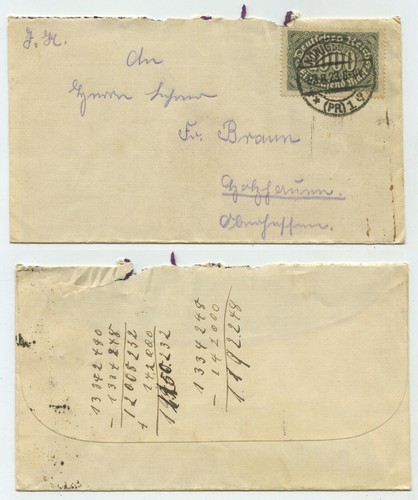 J. H.
An
Herrn Lehrer
Fr. Braun
Holzhausen.
Oberhessen.
Deutsches Reich
(PR) 1
13342480
- 1334248
12008232
+ 142000
232
1334248
- 142000
1192248